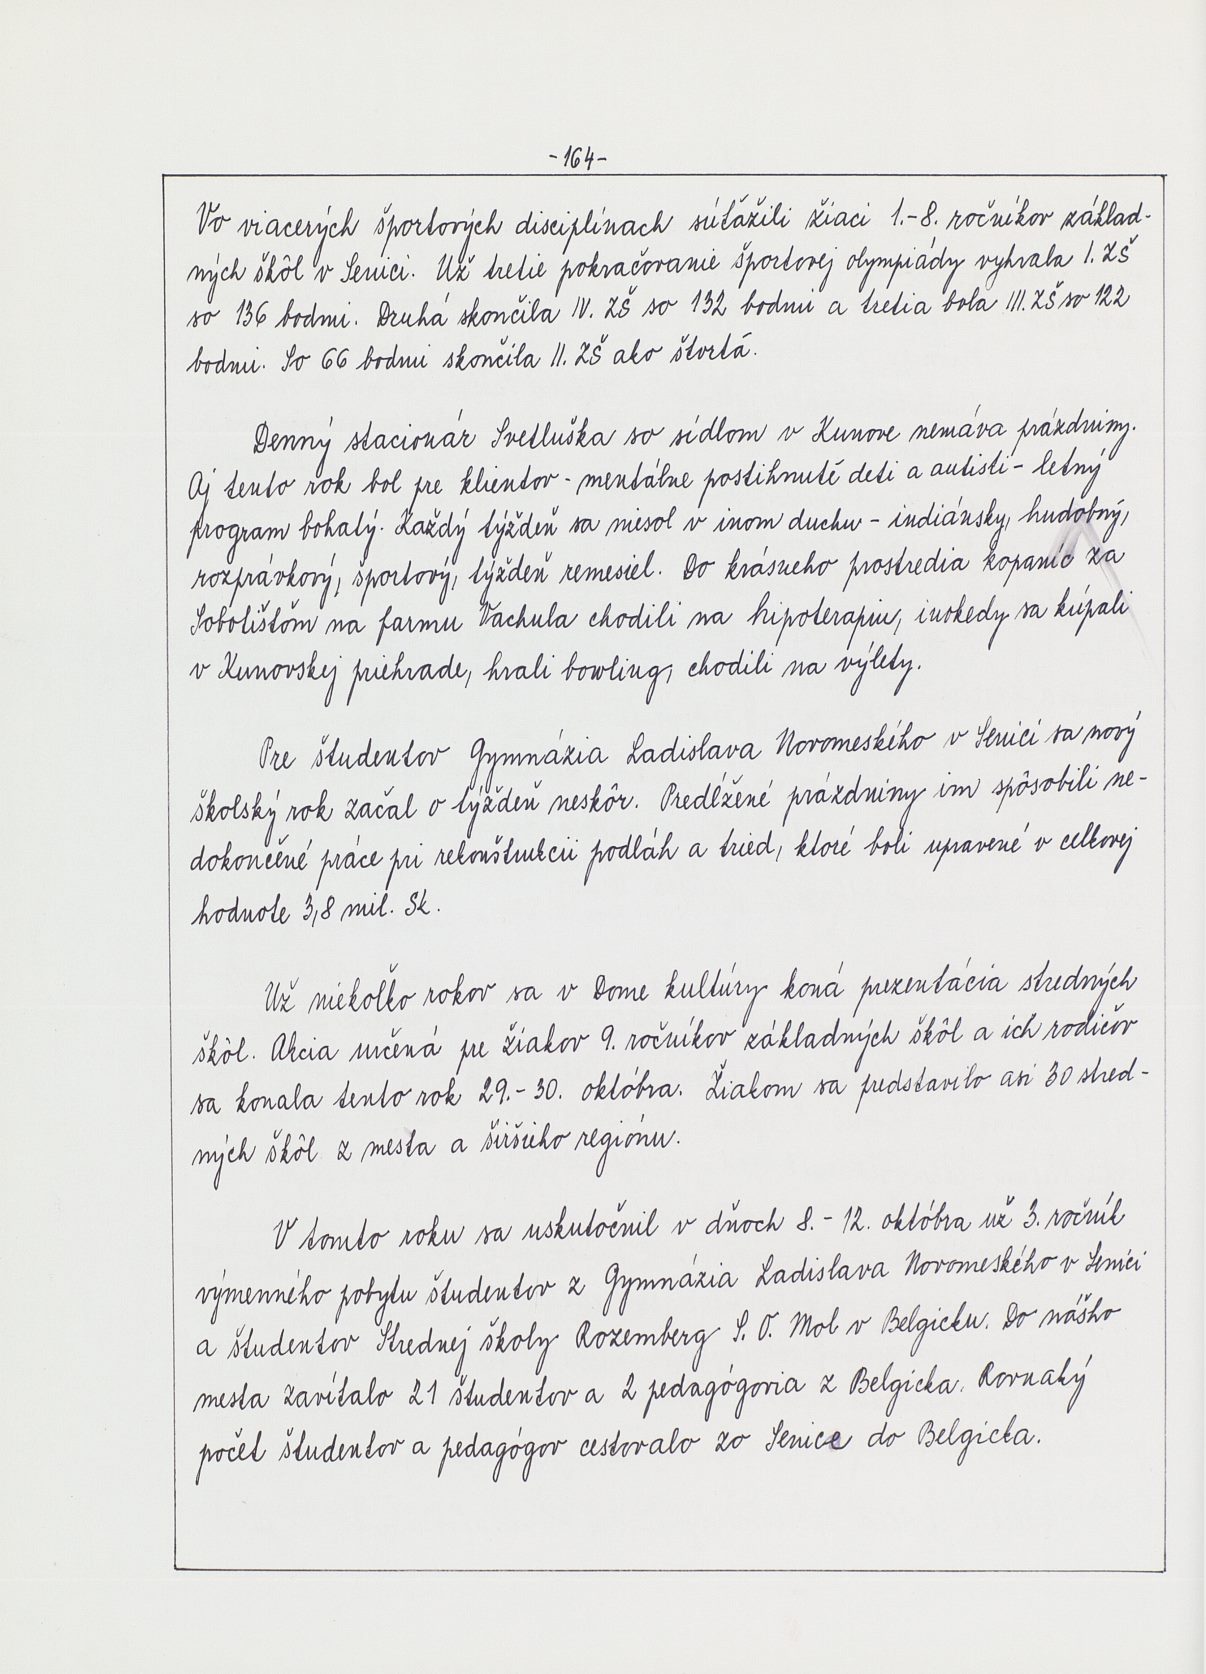 -164-
Vo viacerých športových disciplínach súťažili žiaci 1.-8. ročníkov základ-
ných škôl v Senici. Už tretie pokračovanie športovej olympiády vyhrala I. ZŠ
so 136 bodmi. Druhá skončila IV. ZŠ so 132 bodmi a tretia bola III. ZŠ so 122
bodmi. So 66 bodmi skončila II. ZŠ ako štvrtá.
Denný stacionár Svetluška so sídlom v Kunove nemáva prázdniny.
Aj tento rok bol pre klientov - mentálne postihnuté deti a autisti - letný
program bohatý. Každý týždeň sa niesol v inom duchu - indiánsky, hudobný,
rozprávkový, športový, týždeň remesiel. Do krásneho prostredia kopaníc za
Sobotišťom na farmu Vachula chodili na hipoterapiu, inokedy sa kúpali
v Kunovskej priehrade, hrali bowling, chodili na výlety.
Pre študentov Gymnázia Ladislava Novomeského v Senici sa nový
školský rok začal o týždeň neskôr. Predĺžené prázdniny im spôsobili ne-
dokončené práce pri rekonštrukcii podláh a tried, ktoré boli upravené v celkovej
hodnote 3,8 mil. Sk.
Už niekoľko rokov sa v Dome kultúry koná prezentácia stredných
škôl. Akcia určená pre žiakov 9. ročníkov základných škôl a ich rodičov
sa konala tento rok 29.-30. októbra. Žiakom sa predstavilo asi 30 stred-
ných škôl z mesta a širšieho regiónu.
V tomto roku sa uskutočnil v dňoch 8. - 12. októbra už 3. ročník
výmenného pobytu študentov z Gymnázia Ladislava Novomeského v Senici
a študentov Strednej školy Rozemberg S. O. Mol v Belgicku. Do nášho
mesta zavítalo 21 študentov a 2 pedagógovia z Belgicka. Rovnaký
počet študentov a pedagógov cestovalo zo Senice do Belgicka.